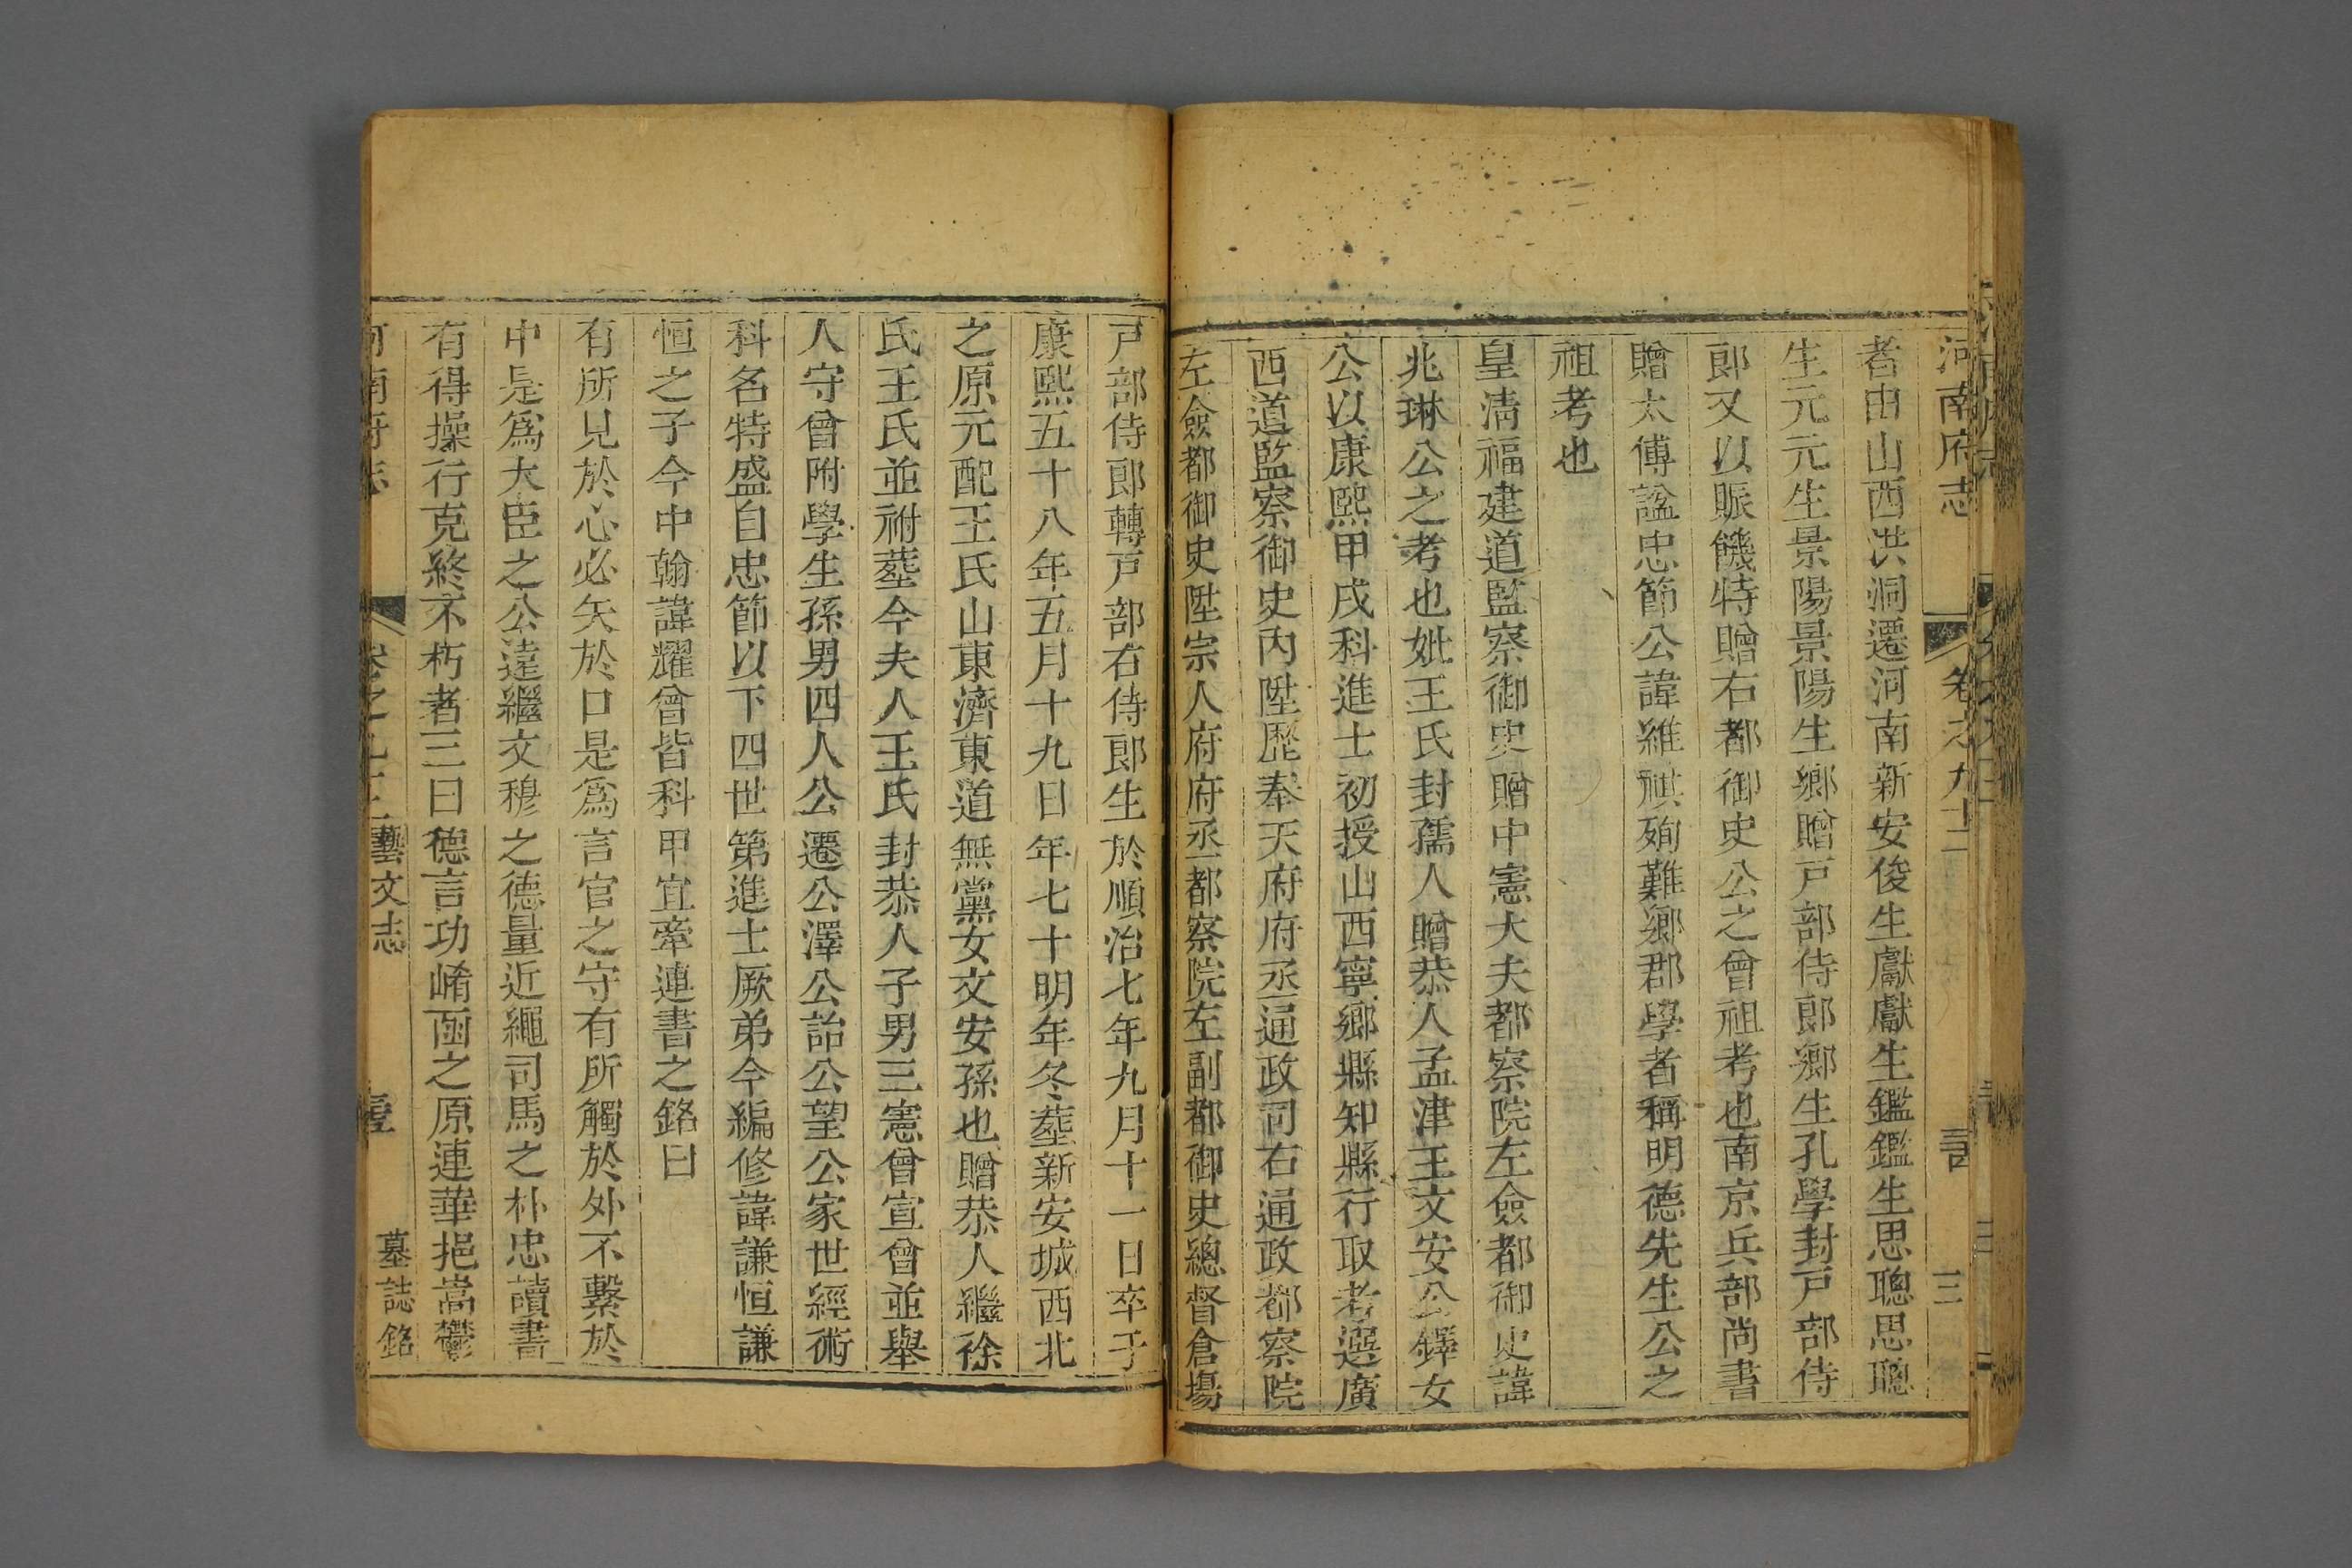 河南府志 卷之九十二 三
者由山西洪洞遷河南新安俊生獻獻生鑑鑑生思聰思聰
生元元生景陽景陽生鄉贈戸部侍郎鄉生孔學封戸部侍
郎又以賑饑特贈右都御史公之曾祖考也南京兵部尚書
贈太傅諡忠節公諱維祺殉難鄉郡學者稱明德先生公之
祖考也
皇清福建道監察御史贈中憲大夫都察院左僉都御史諱
兆琳公之考也妣王氏封孺人贈恭人孟津王文安公鐸女
公以康熙甲戌科進士初授山西寧鄉縣知縣行取考選廣
西道監察御史內陞歷奉天府府丞通政司右通政都察院
左僉都御史陞宗人府府丞都察院左副都御史總督倉場
戸部侍郎轉戸部右侍郎生於順治七年九月十一日卒于
康熙五十八年五月十九日年七十明年冬塟新安城西北
之原元配王氏山東濟東道無黨女文安孫也贈恭人繼徐
氏王氏並祔塟今夫人王氏封恭人子男三憲曾宣曾並舉
人守曾附學生孫男四人公遷公澤公詒公望公家世經術
科名特盛自忠節以下四世第進士厥弟今編修諱謙恒謙
恒之子今中翰諱耀曾皆科甲宜牽連書之銘曰
有所見於心必矢於口是爲言官之守有所觸於外不繫於
中是爲大臣之公遠繼文穆之德量近繩司馬之朴忠讀書
有得操行克終不朽者三曰德言功崤函之原連華挹嵩鬱
河南府志 卷之九十二 藝文志 墓誌銘